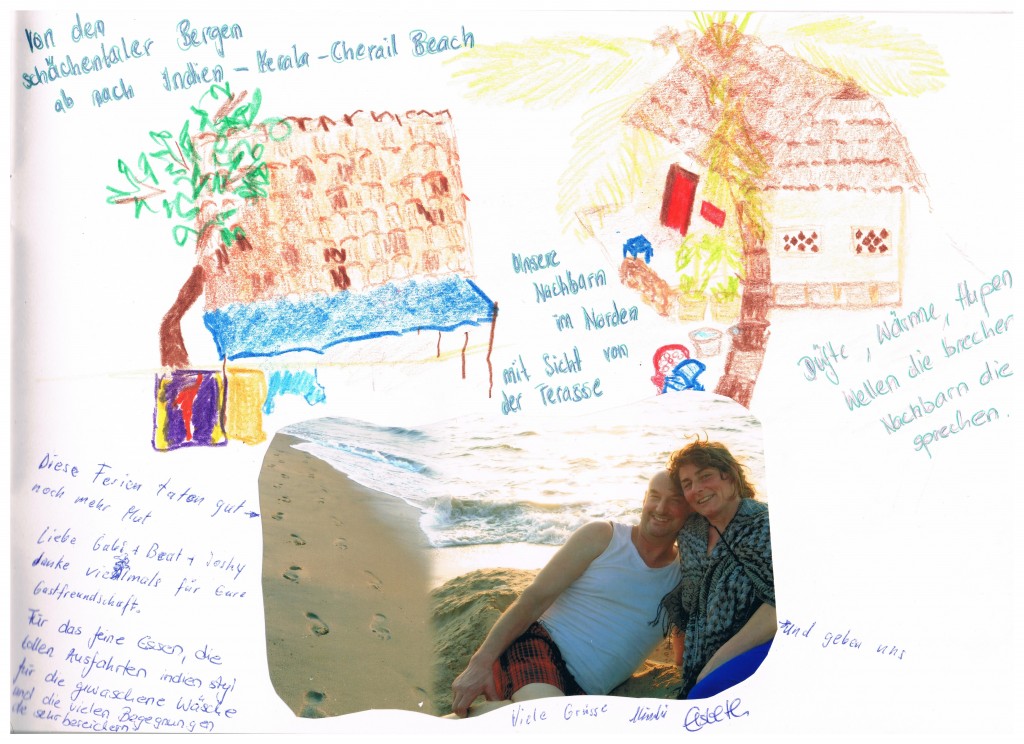 Von den
schächentaler Bergen
ab nach Indien - Kerala - Cherail Beach
Unsere
Nachbarn
im Norden
mit Sicht von
der Terasse
Düfte, Wärme, Hupen
Wellen die brechen
Nachbarn die
sprechen.
Diese Ferien taten gut
und geben uns
noch mehr Mut
Liebe Gabi + Beat + Joshy
danke vielmals für Eure
Gastfreundschaft.
Für das feine Essen, die
tollen Ausfahrten indien styl
für die gewaschene Wäsche
und die vielen Begegnungen
die sehr bereichern
Viele Grüsse